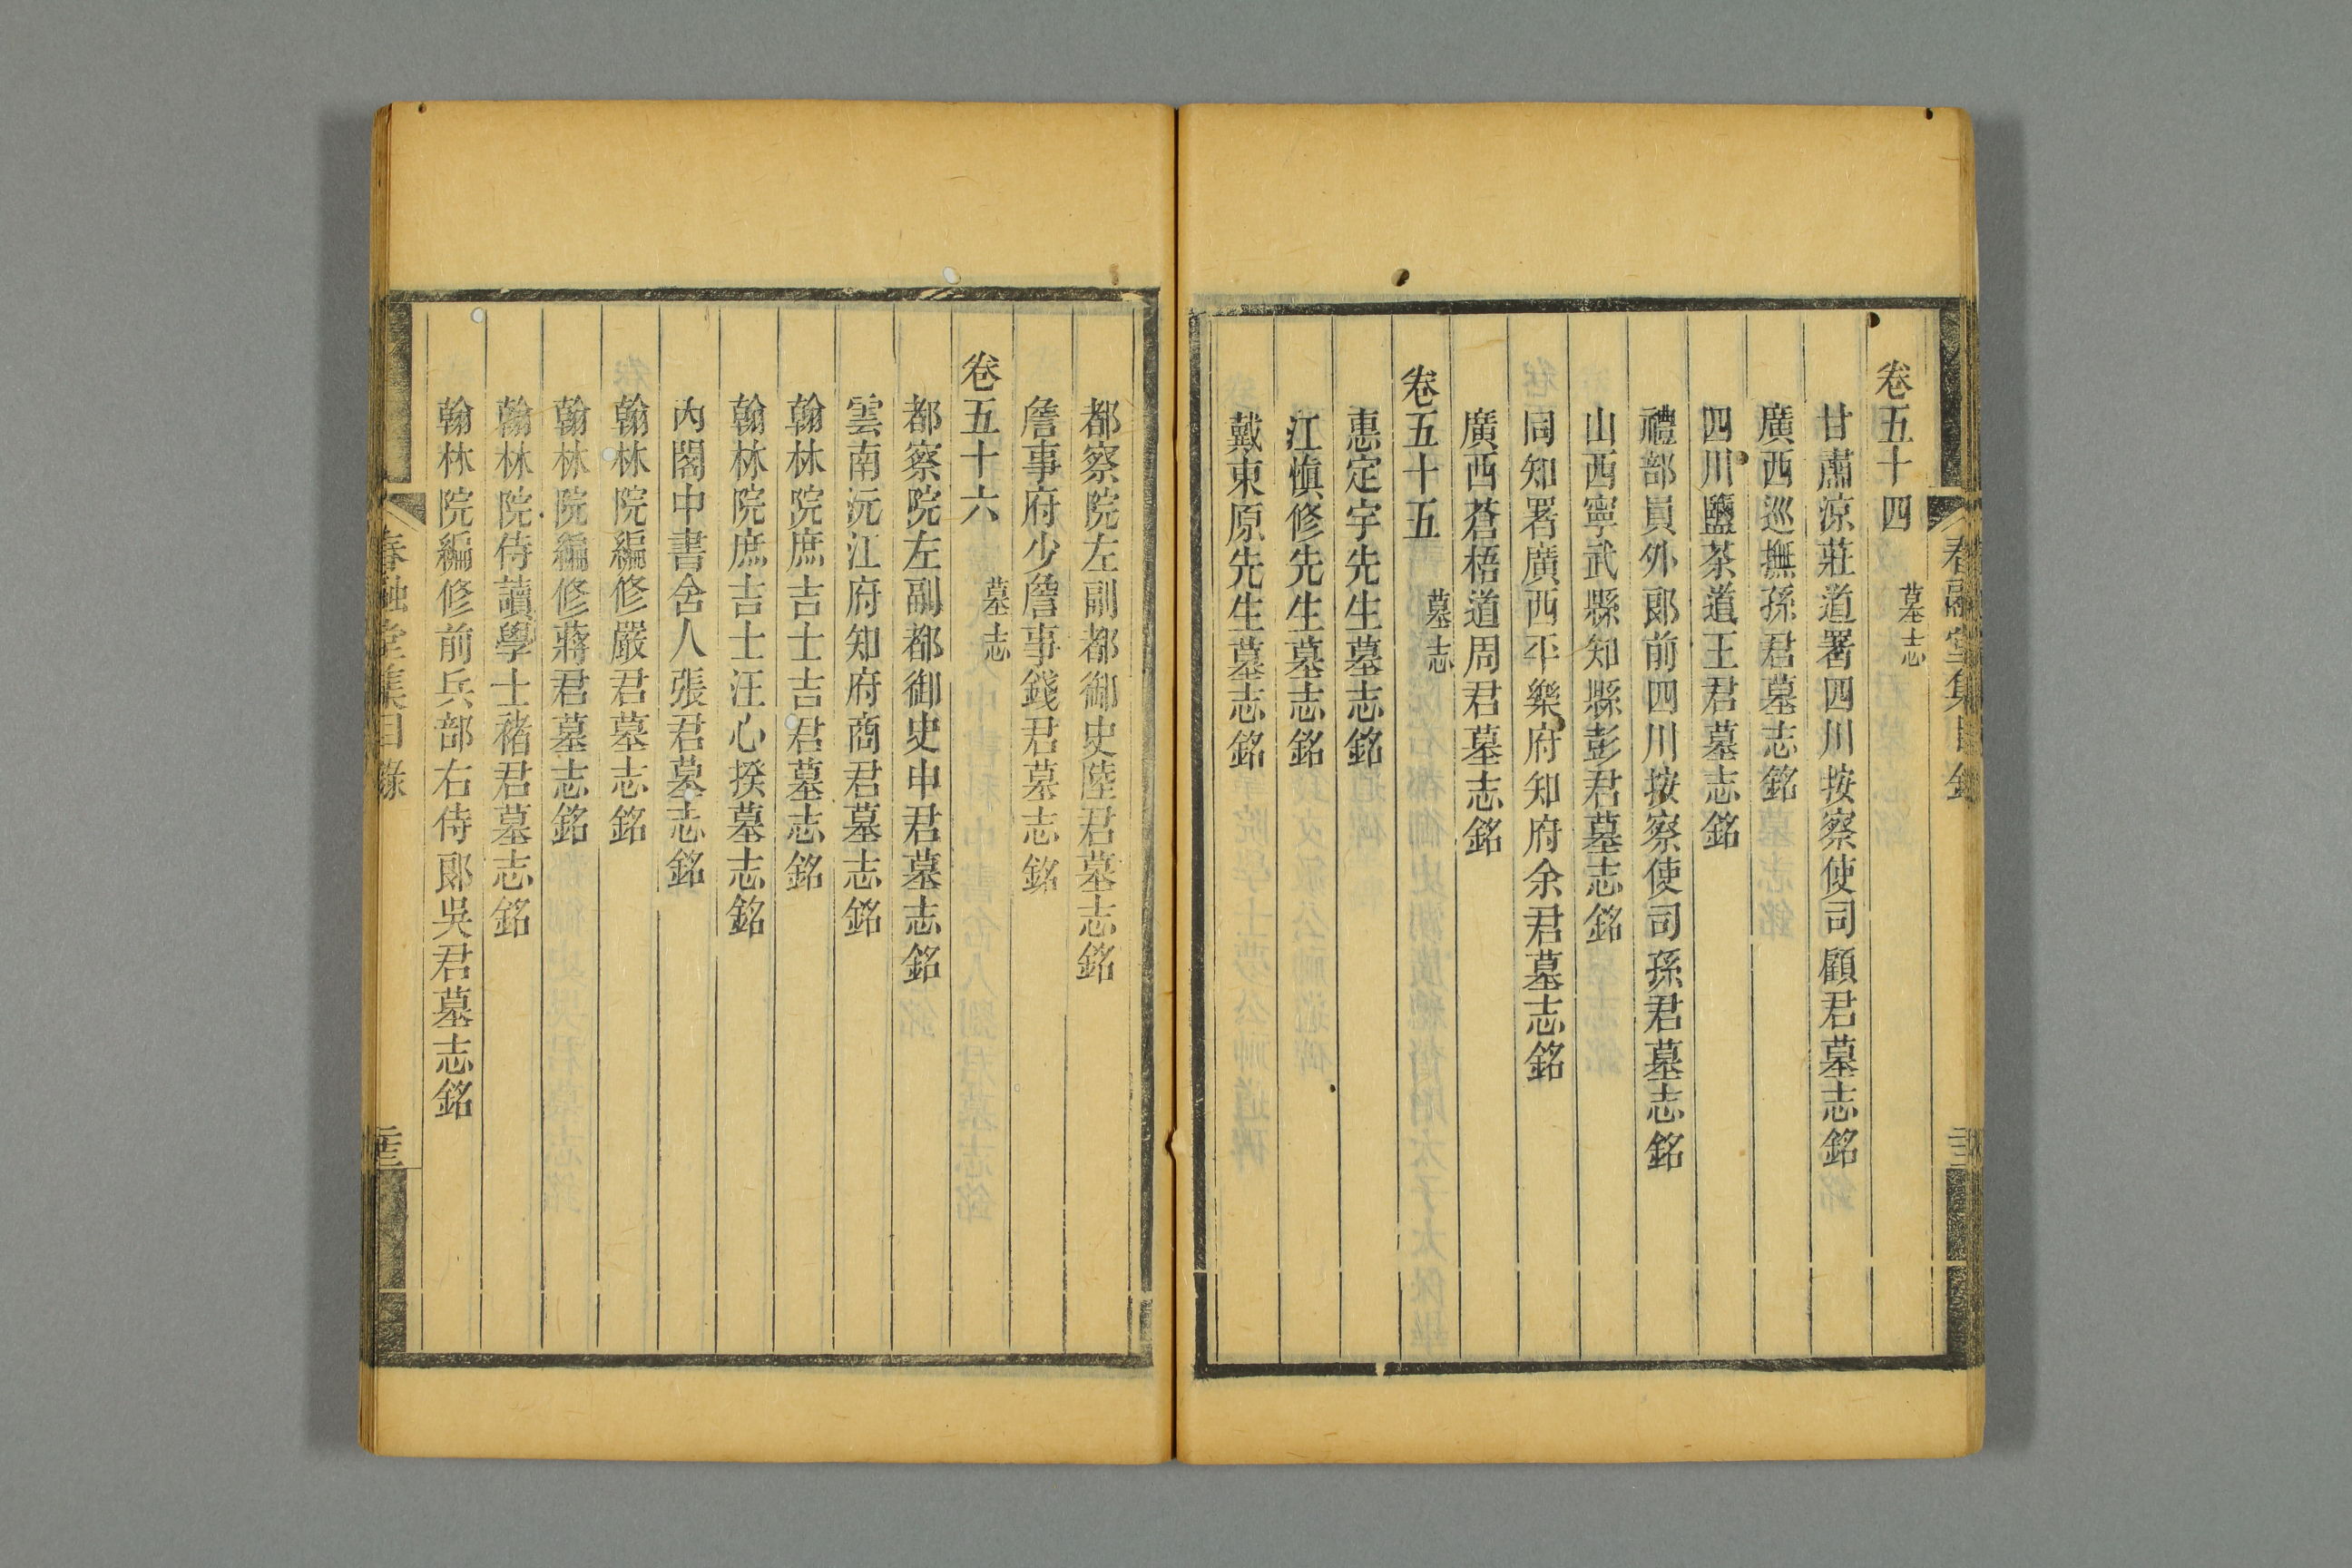 卷五十四 墓志
甘肅涼莊道署四川按察使司顧君墓志銘
廣西巡撫孫君墓志銘
四川鹽茶道王君墓志銘
禮部員外郎前四川按察使司孫君墓志銘
山西寧武縣知縣彭君墓志銘
同知署廣西平樂府知府余君墓志銘
廣西蒼梧道周君墓志銘
卷五十五 墓志
惠定宇先生墓志銘
江慎修先生墓志銘
戴東原先生墓志銘
都察院左副都御史陸君墓志銘
詹事府少詹事錢君墓志銘
卷五十六 墓志
都察院左副都御史申君墓志銘
雲南沅江府知府商君墓志銘
翰林院庶吉士吉君墓志銘
翰林院庶吉士汪心揆墓志銘
內閣中書舍人張君墓志銘
翰林院編修嚴君墓志銘
翰林院編修蔣君墓志銘
翰林院侍讀學士褚君墓志銘
翰林院編修前兵部右侍郎吳君墓志銘
春融堂集目錄